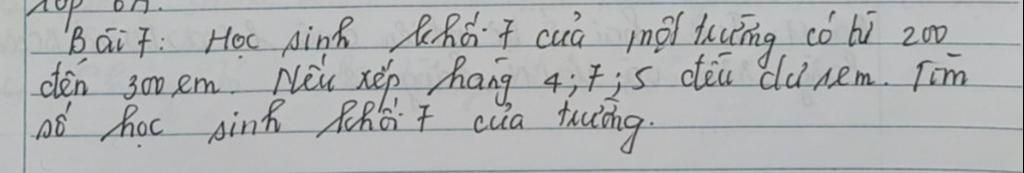 Lớp 6A.
Bài 7: Học sinh khối 7 của một trường có từ 200
đến 300 em. Nếu xếp hàng 4; 7; 5 đều dư 1 em. Tìm
số học sinh khối 7 của trường.